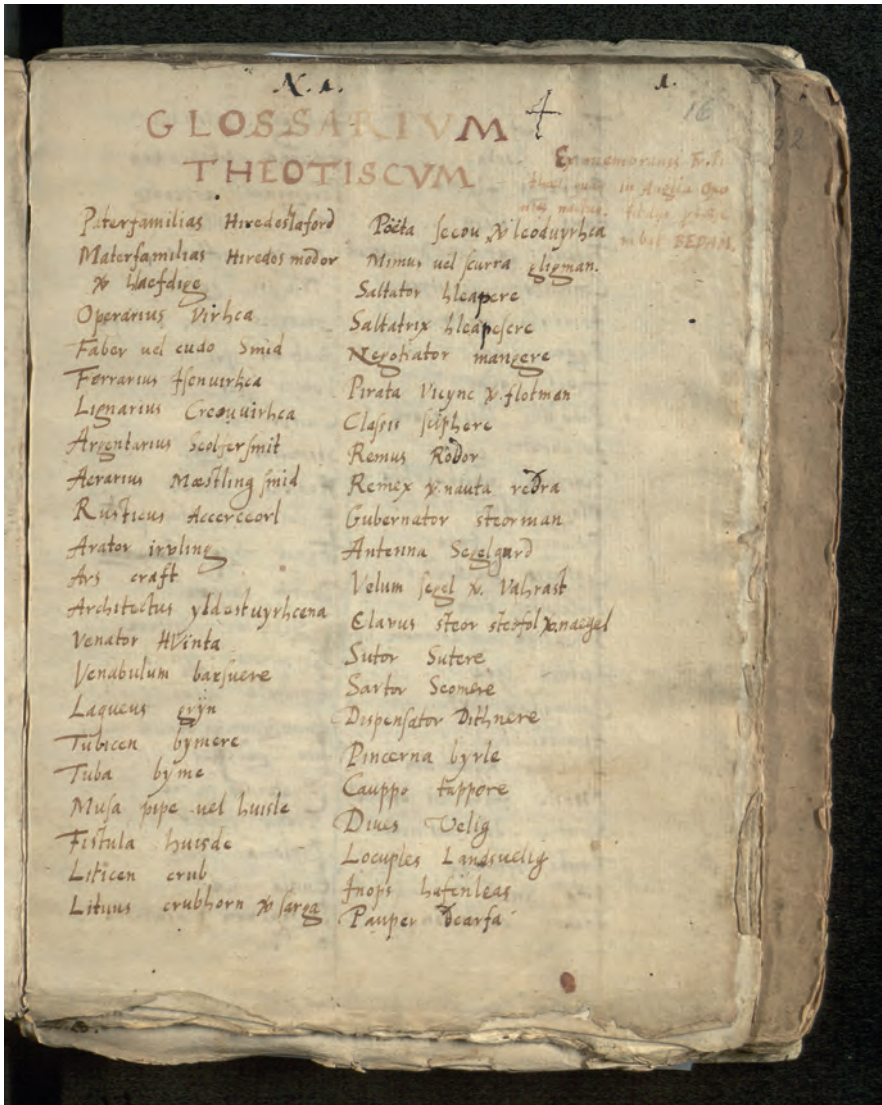 N. 1.
1.
16
32
GLOSSARIVM
THEOTISCVM
in Anglia
BEDAM.
Paterfamilias Hiredeslaford
Materfamilias Hiredos modor
Haefdige
Operarius Virhca
Faber uel cudo Smid
Ferrarius Isenuirhca
Lignarius Creouuirhca
Argentarius Seolfersmit
Aerarius Mæstling smid
Rusticus Accerceorl
Arator irvling
Ars craft
Architectus yldestuyrhcena
Venator HVinta
Venabulum barsuere
Laqueus gryn
Tubicen bymere
Tuba byme
Musa pipe uel huisle
Fistula huisde
Liticen crub
Lituus crubhorn sarga
Poëta sceou leoduyrhca
Mimus uel scurra gligman.
Saltator hleapere
Saltatrix hleapesere
Negotiator mangere
Pirata Vicync flotman
Classis sciphere
Remus Roðor
Remex nauta reðra
Gubernator steorman
Antenna Segelgard
Velum segel Vahrast
Clavus steor steofol naegel
Sutor Sutere
Sartor Seomere
Dispensator Dithnere
Pincerna byrle
Cauppo tappore
Dives Velig
Locuples Landsuelig
Inops hafenleas
Pauper ðearfa